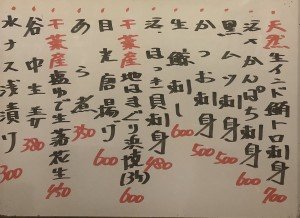 天然生インド鮪トロ刺身 700
活〆かんぱち刺身 600
黒ムツ刺身 500
かつお刺身 500
生鯨刺し 600
活ほっき貝刺身 480
千葉産地はまぐり浜焼(3ヶ) 600
目光唐揚げ 600
あら煮 350
千葉産塩ゆで生落花生 450
谷中生姜 380
水ナス浅漬け 300